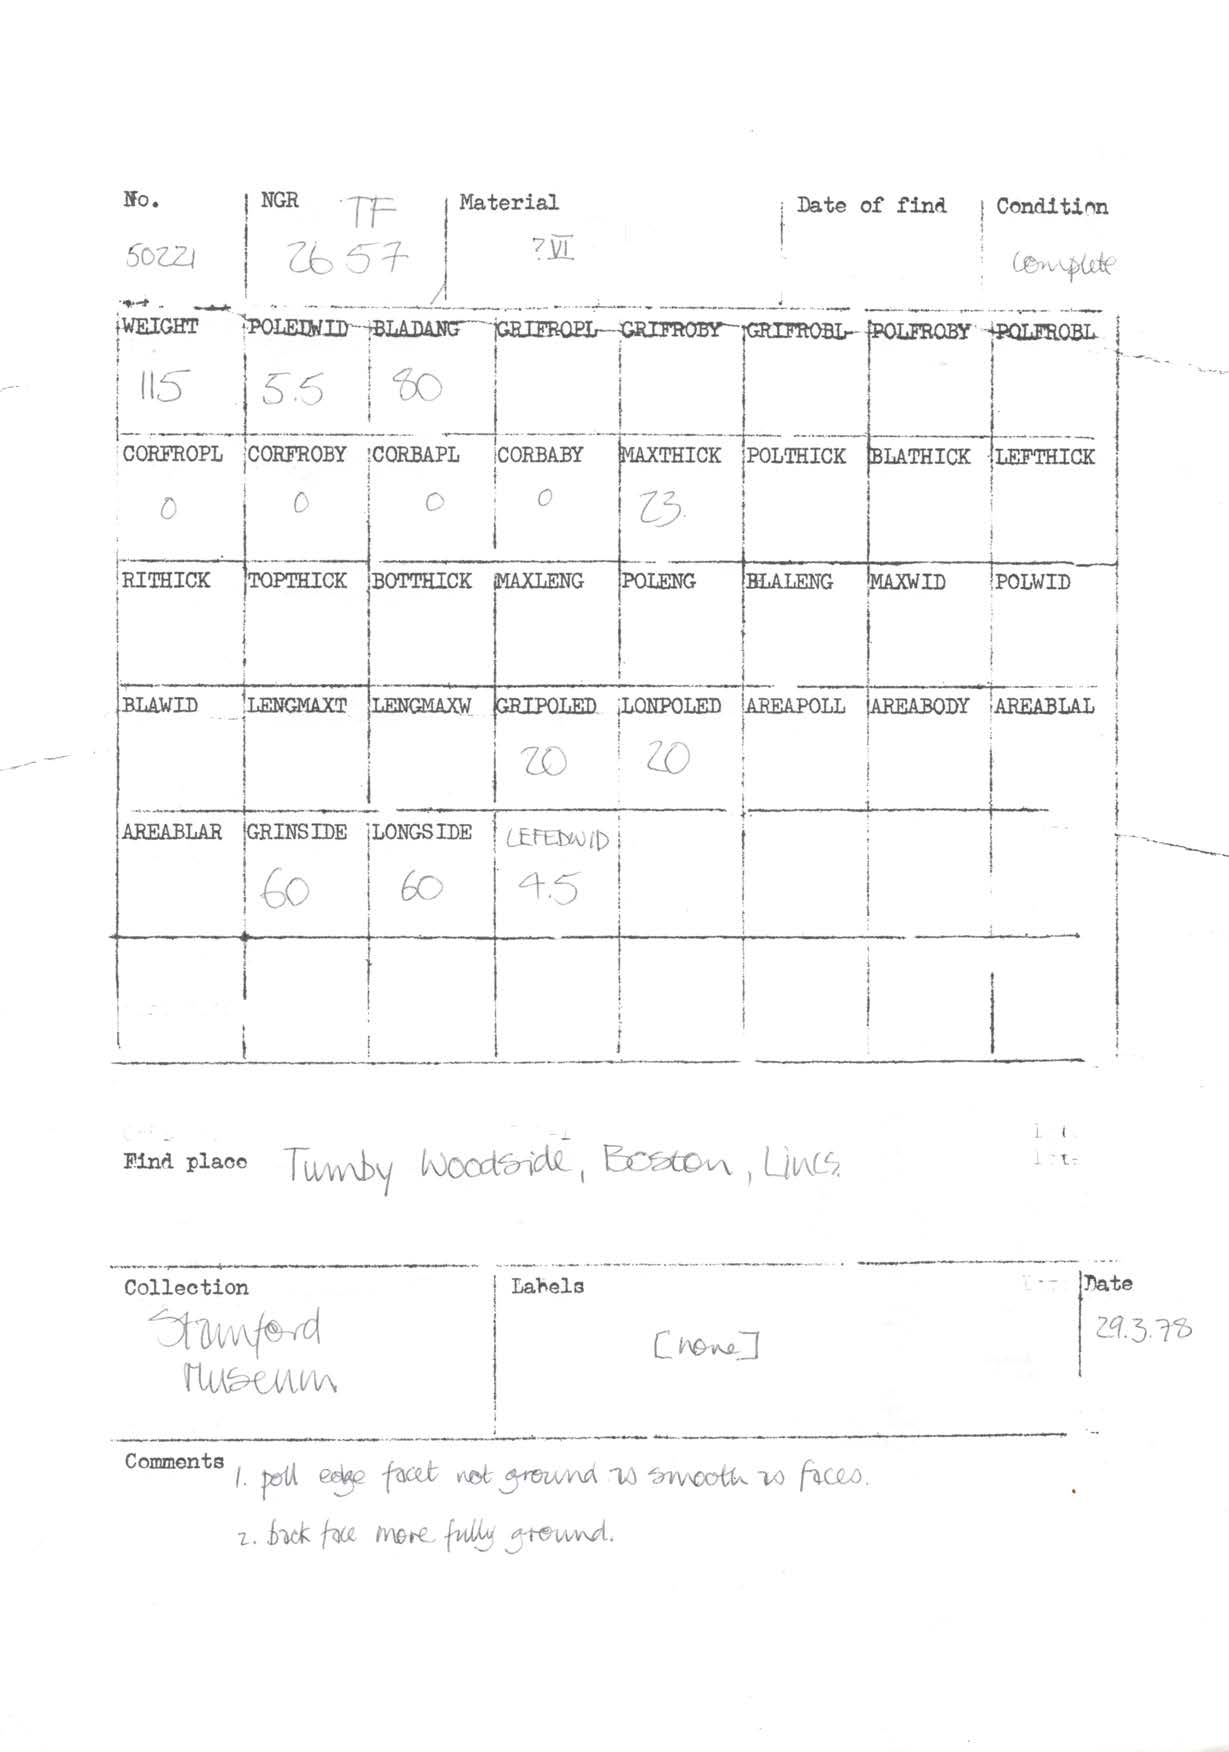 No. NGR TF Material Date of find Condition
50221 26 57 ? VI complete
WEIGHT POLEDWID BLADANG GRIFROPL GRIFROBY GRIFROBL POLFROBY POLFROBL
115 5.5 80
CORFROPL CORFROBY CORBAPL CORBABY MAXTHICK POLTHICK BLATHICK LEFTHICK
0 0 0 0 23
RITHICK TOPTHICK BOTTHICK MAXLENG POLENG BLALENG MAXWID POLWID
BLAWID LENGMAXT LENGMAXW GRIPOLED LONPOLED AREAPOLL AREABODY AREABLAL
20 20
AREABLAR GRINSIDE LONGSIDE LEFEDWID
60 60 4.5
Find place Tumby Woodside, Boston, Lincs
Collection Labels Date
Stamford [none] 29.3.78
Museum
Comments 1. poll edge facet not ground as smooth as faces.
2. back face more fully ground.